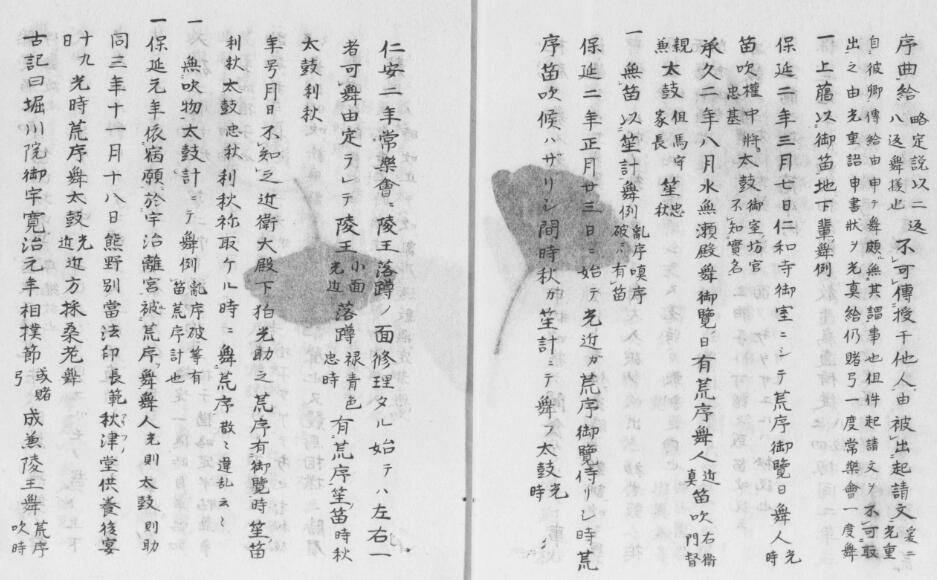 序曲給 略定説以二返 八返舞援也 不可傳授于他人由被出起請文 爰ニ光重
自彼卿傳給由申テ舞頗無其謂事也但件起請文ヲ不可取
出之由光重詔申書状ヲ光真給仍賭弓一度常樂會一度舞
一上﨟以御笛地下輩舞例
保延二年三月七日仁和寺御室ニシテ荒序御覧日舞人 光時
笛吹權中將 忠基 太鼓 御室坊官 不知實名
承久二年八月水無瀬殿舞御覧日有荒序舞人 近真 笛吹 右衛門督
親兼 太鼓 但馬守 家長 笙 忠秋
一無笛以笙計舞例 乱序嗔序 破ニハ有笛
保延二年正月廿三日ニ始テ光近ガ荒序御覧侍リシ時荒
序笛吹候ハサリシ間時秋ガ笙計ニテ舞フ太鼓 光時
仁安二年常樂會ニ陵王落蹲ノ面修理タル始テハ左右一
者可舞由定テレテ陵王 小面 光近 落蹲 禄青色 忠時 有荒序笙笛時秋
太鼓利秋
年号月日不知之近衛大殿下伯光助之荒序有御覧時笙笛
利秋太鼓忠秋利秋祢取ケル時ニ舞荒序散々違乱云々
一無吹物太鼓計ニテ舞例 乱序破等有笛荒序計也
一保延元年依宿願於宇治離宮被荒序舞舞人光則太鼓則助
同三年十一月十八日熊野別當法印長範秋津堂供養後宴
十九日 光時荒序舞太鼓 光近 近方採桑老舞
古記曰堀川院御宇寛治元年相撲節 或賭弓 成兼陵王舞 荒序吹時